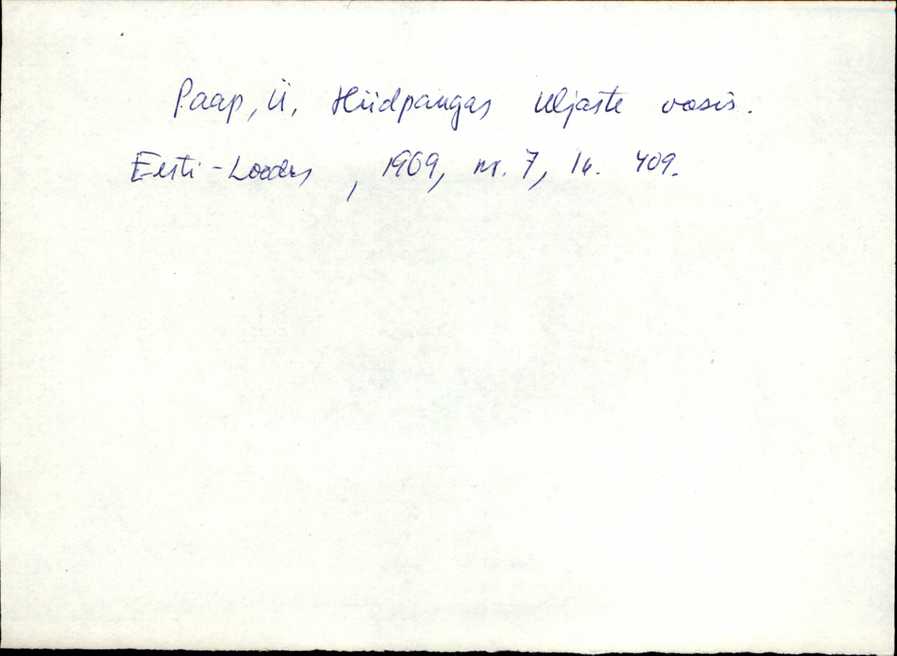 Paap, Ü. Hüdpangas Uljaste oosis.
Eesti-Loodus, 1969, nr. 7, lk. 409.